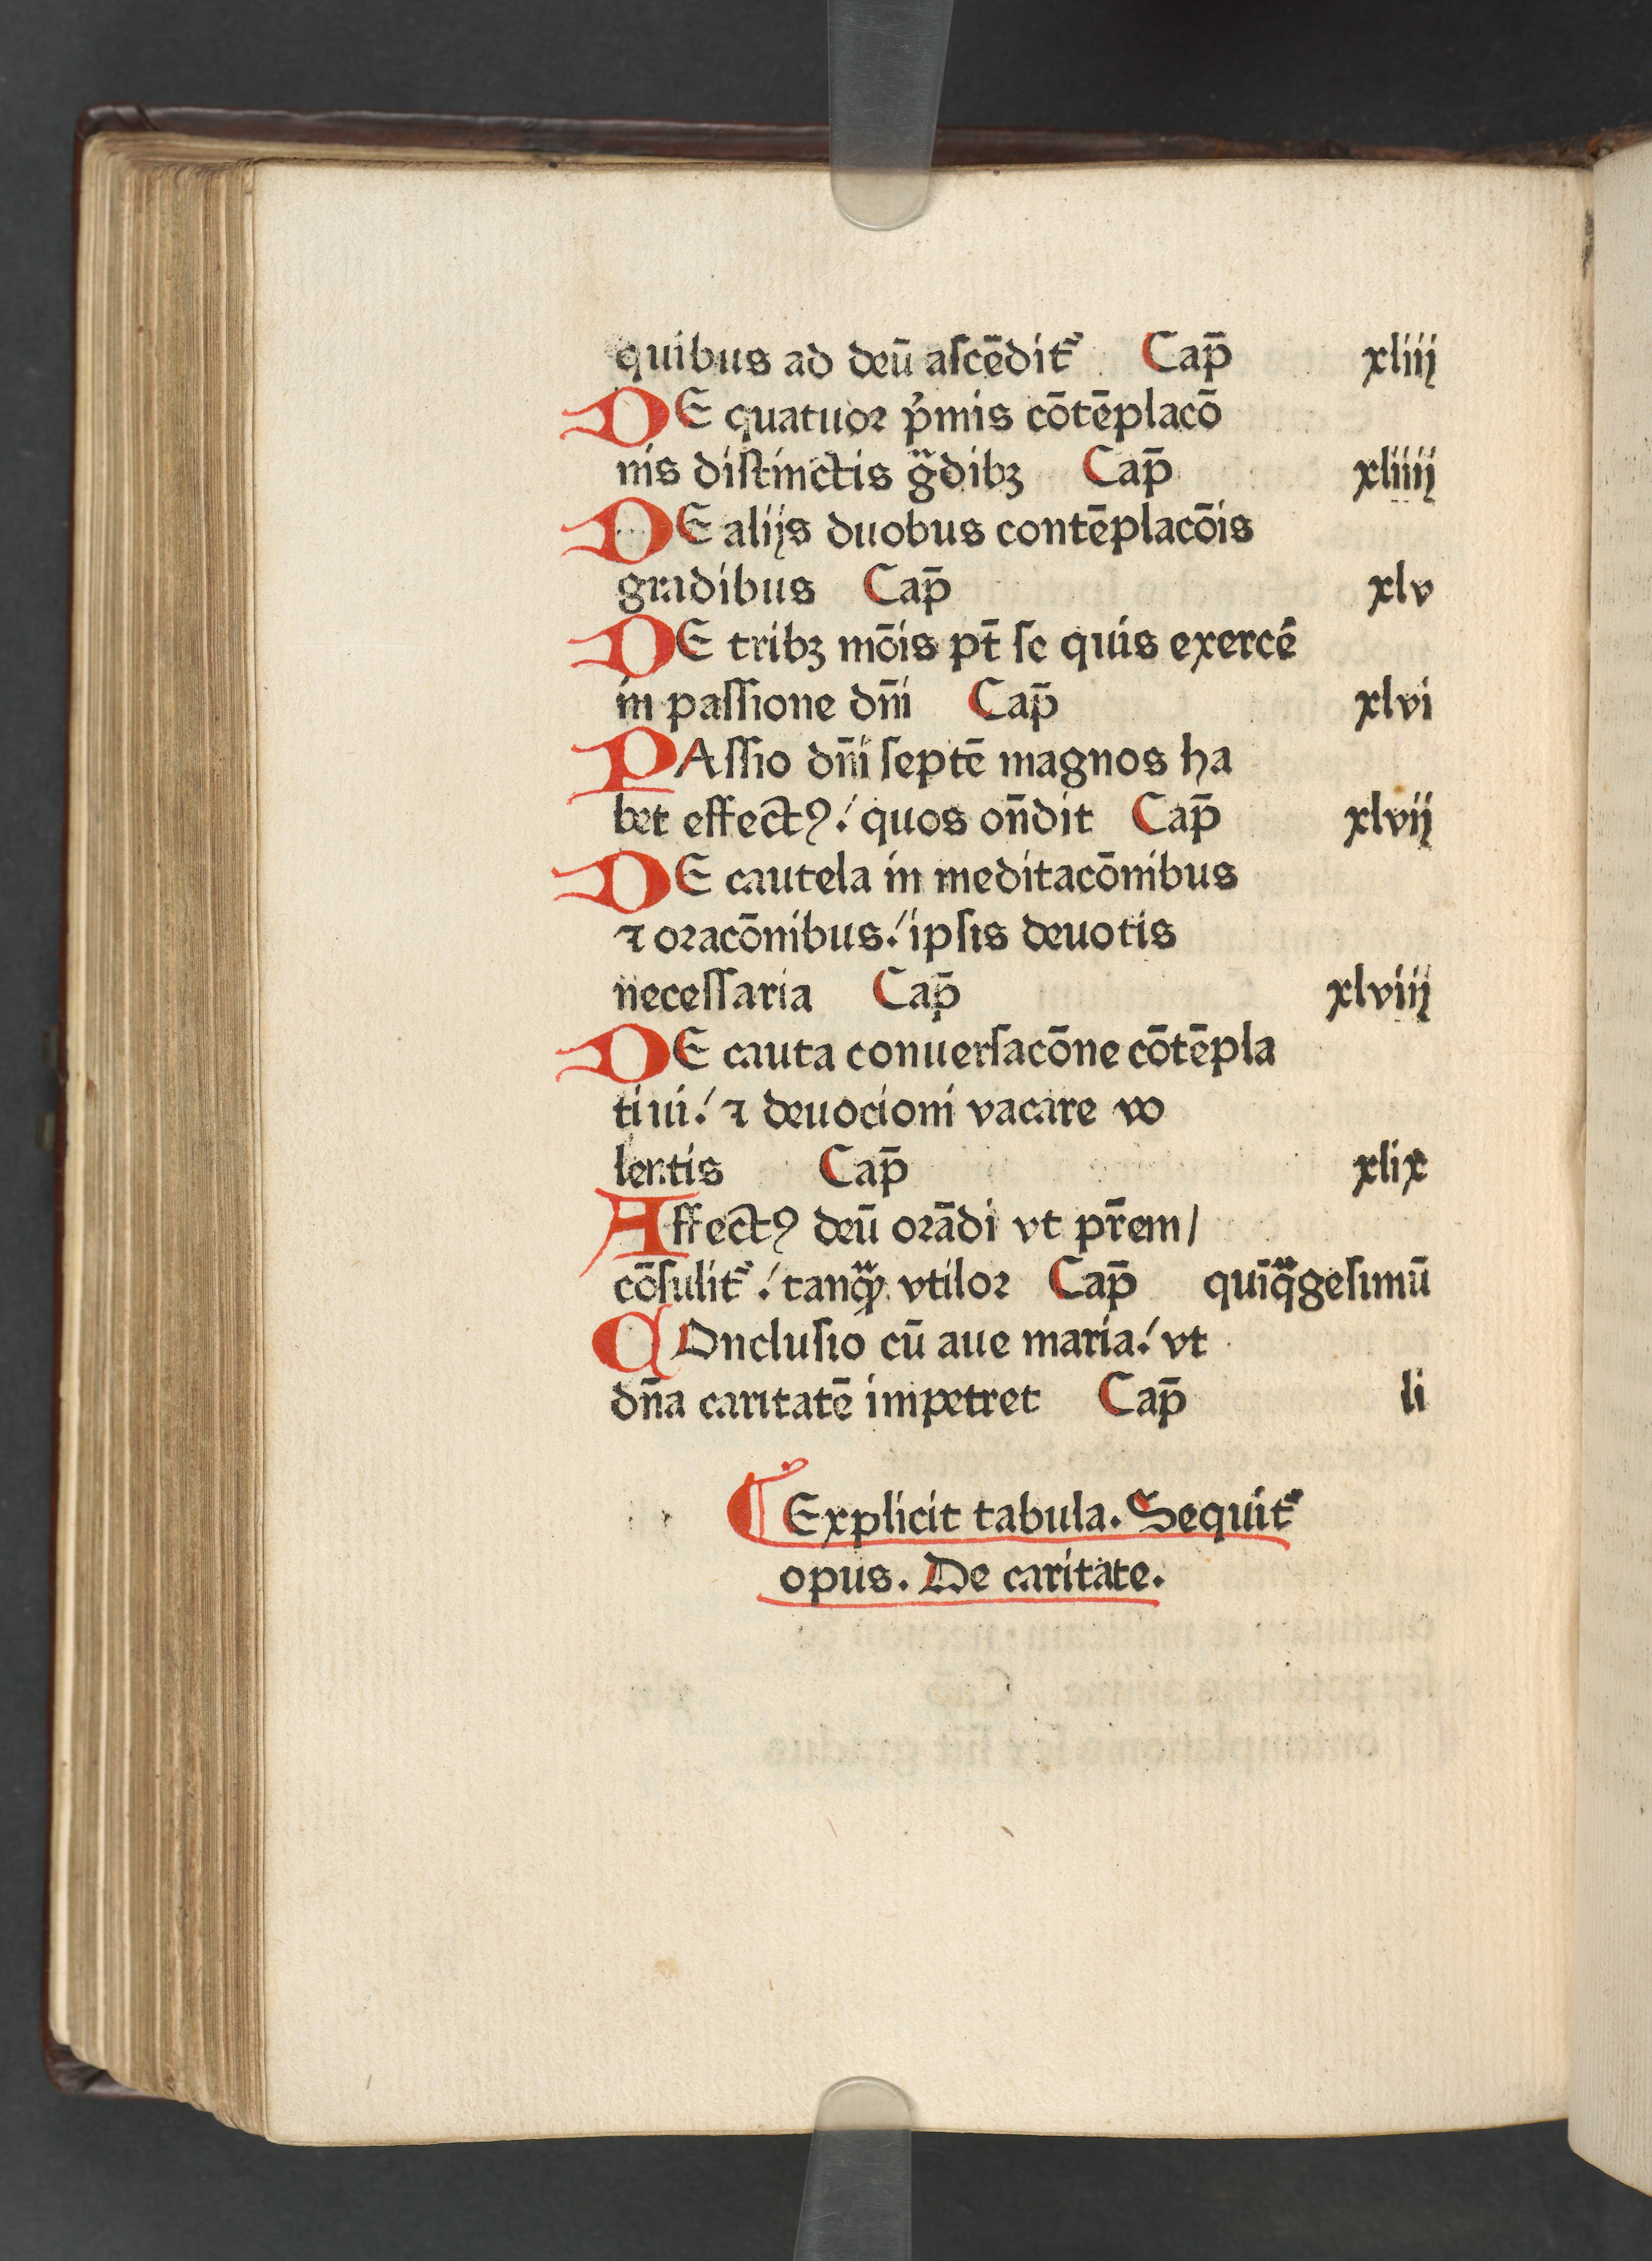 quibus ad deū aſcēdit᷑ Cap̄ xliij
DE quatuor p̓mis cōtēplacō
nis diſtinctis gᷓdibꝫ Cap̄ xliiij
DE alijs duobus contēplacōis
gradibus Cap̄ xlv
DE tribꝫ mōis pt̄ ſe quis exercē
in paſſione dn̄i Cap̄ xlvi
PAſſio dn̄i ſeptē magnos ha
bet effectꝰ./ quos on̄dit Cap̄ xlvij
DE cautela in meditacōnibus
⁊ oracōnibus./ ipſis deuotis
neceſſaria Cap̄ xlviij
DE cauta conuerſacōne cōtēpla
tiui./ ⁊ deuocioni vacare vo
lentis Cap̄ xlix
Affectꝰ deū orādi vt pr̄em/
cōſulit᷑./ tanqᷓꝫ vtilor Cap̄ quīqᷓgeſimū
COncluſio cū aue maria./ vt
dn̄a caritatē impetret Cap̄ li
¶ Explicit tabula. Sequit᷑
opus. De caritate.